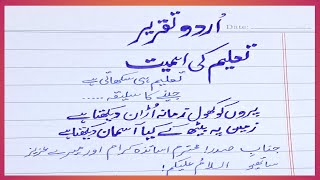 اُردو تقریر
Date:
تعلیم کی اہمیت
تعلیم ہی سکھاتی ہے
جینے کا سلیقہ .....
پروں کو کھول زمانہ اُڑان دیکھتا ہے
زمین پہ بیٹھ کے کیا آسمان دیکھتا ہے
جناب صدر محترم اساتذہ کرام اور میرے عزیز
ساتھیو السلامُ علیکم!